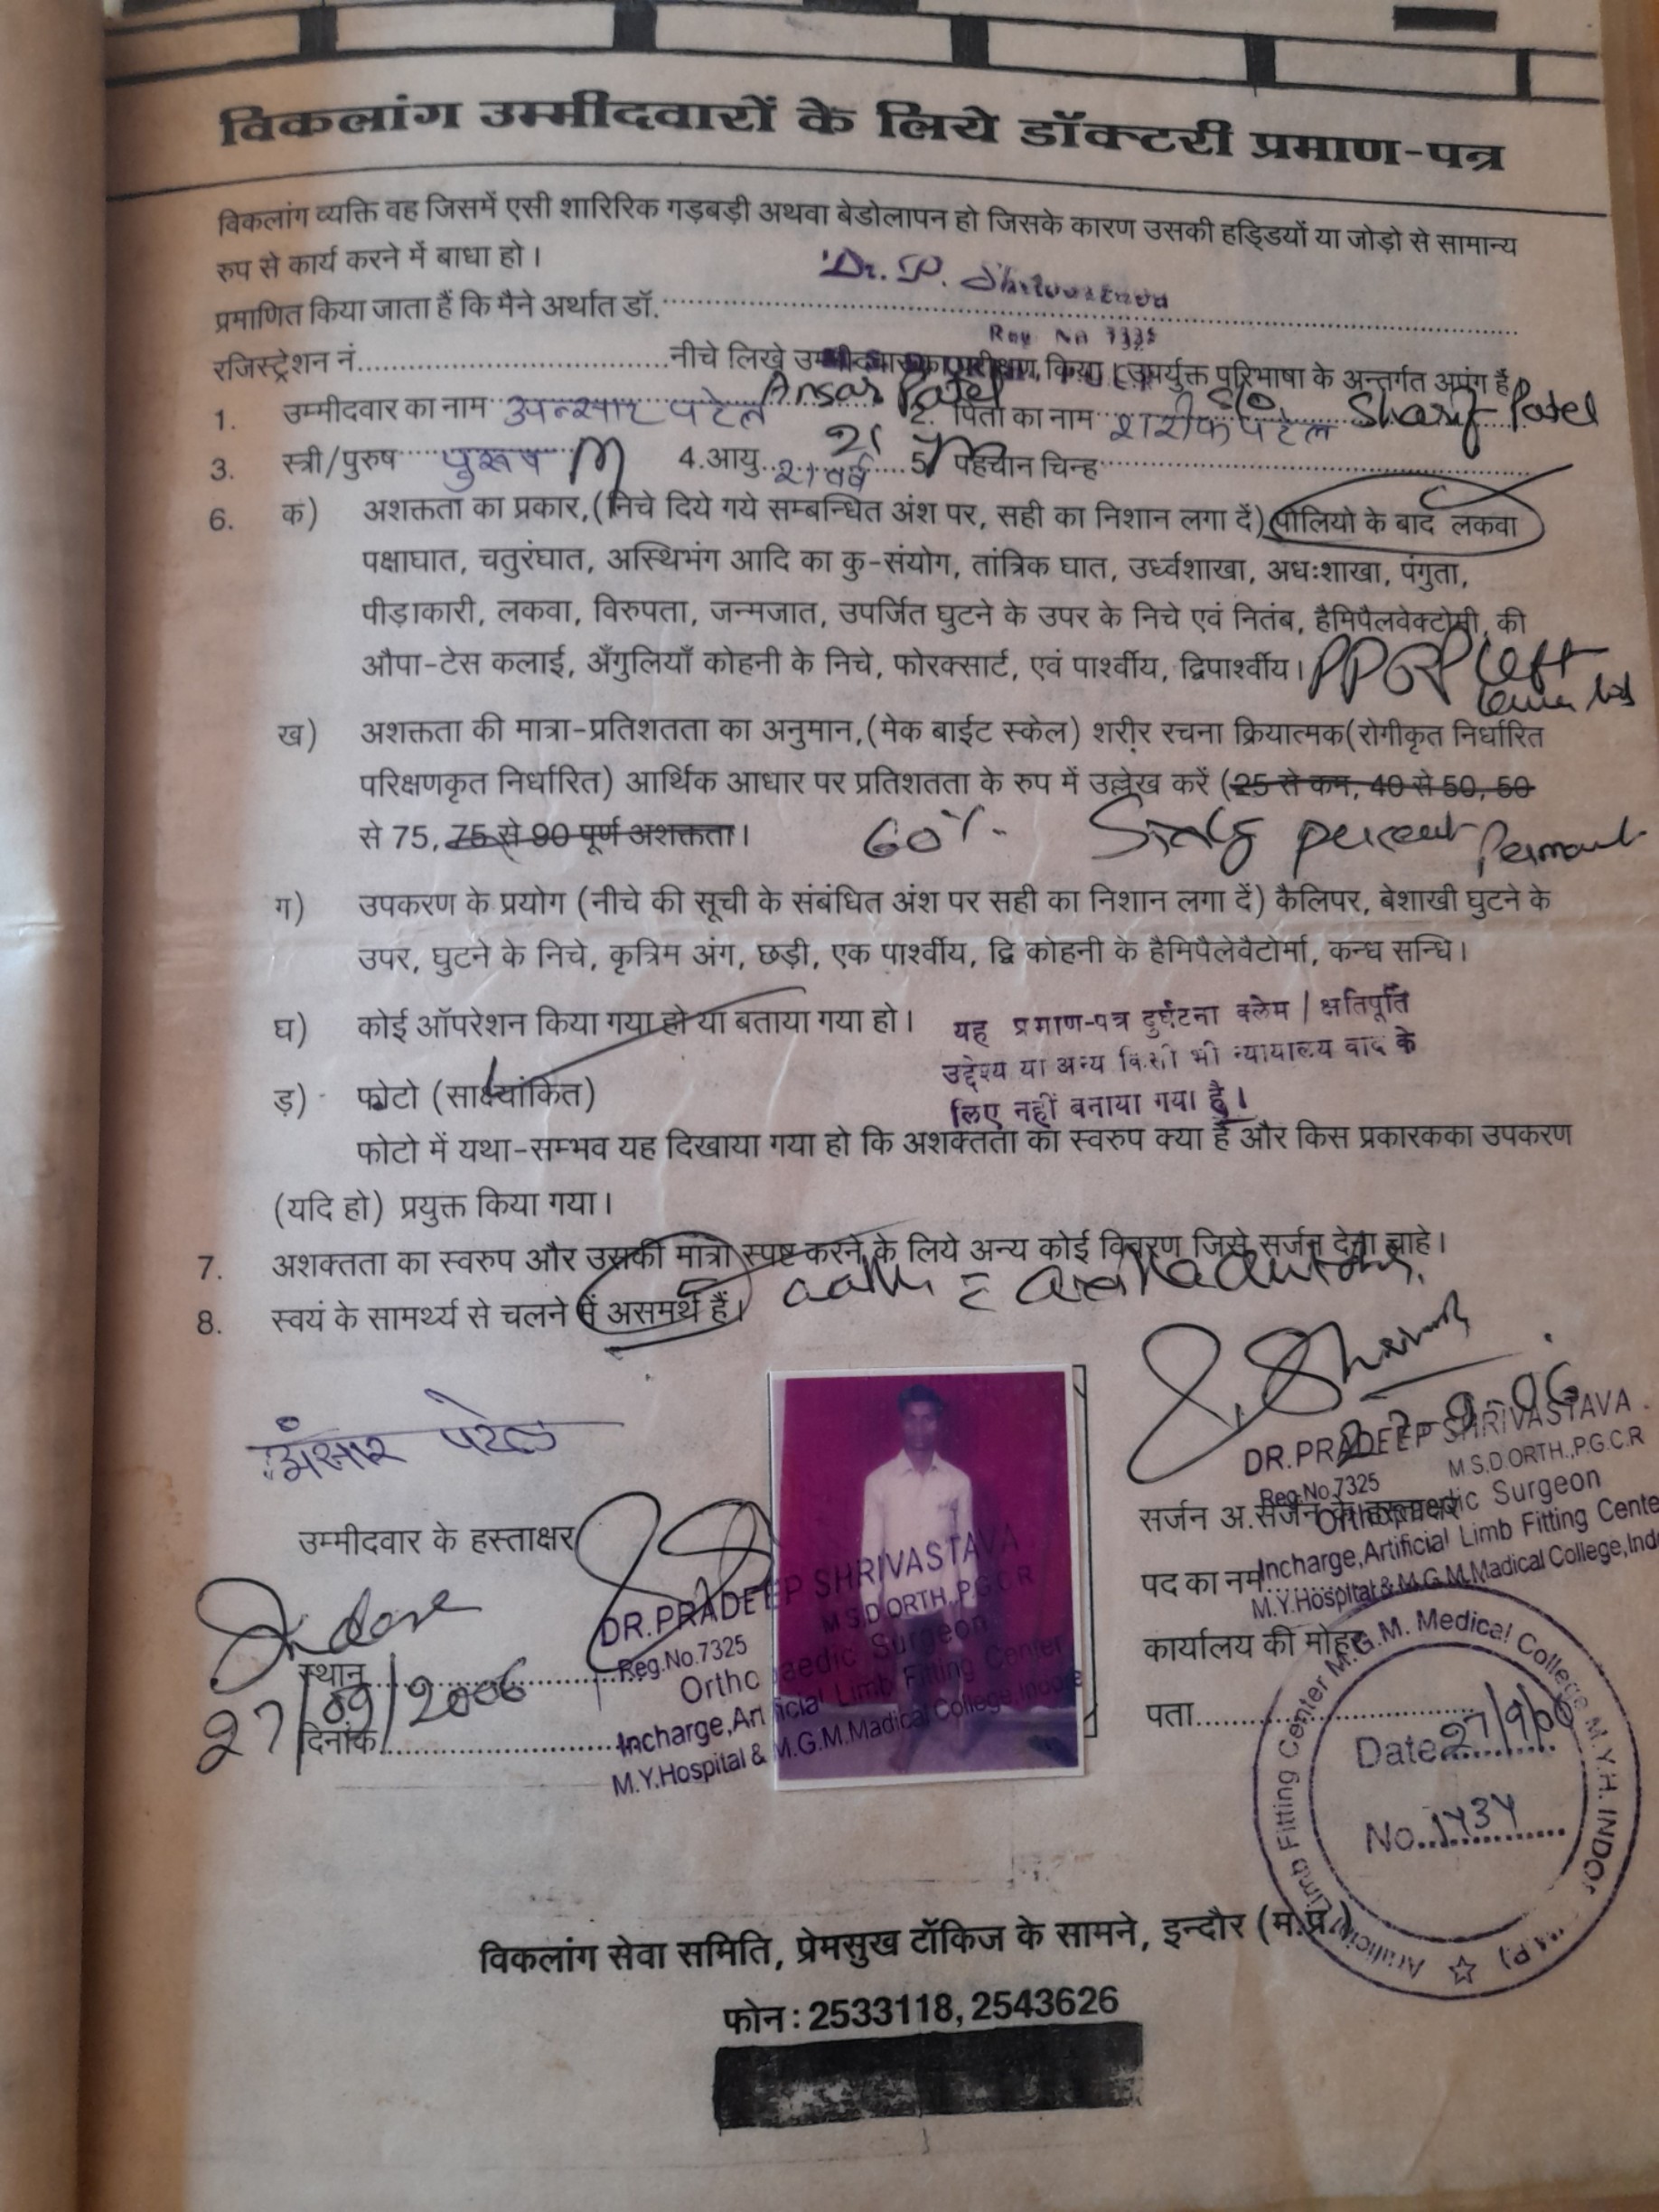 विकलांग उम्मीदवारों के लिये डॉक्टरी प्रमाण-पत्र
विकलांग व्यक्ति वह जिसमें एसी शारिरिक गड़बड़ी अथवा बेडोलापन हो जिसके कारण उसकी हड्डियों या जोड़ो से सामान्य
रुप से कार्य करने में बाधा हो।
प्रमाणित किया जाता हैं कि मैने अर्थात डॉ. Dr. P. Shrivastava
Reg No 7325
रजिस्ट्रेशन नं. नीचे लिखे उम्मीदवार का परीक्षण किया। उपर्युक्त परिभाषा के अन्तर्गत अपंग हैं।
1. उम्मीदवार का नाम अन्सार पटेल Ansar Patel 2. पिता का नाम शरीफ पटेल S/o. Sharif Patel
3. स्त्री/पुरुष पुरूष M 4.आयु 21 २१ वर्ष 5 पहचान चिन्ह
6. क) अशक्तता का प्रकार,(निचे दिये गये सम्बन्धित अंश पर, सही का निशान लगा दें) पोलियो के बाद लकवा
पक्षाघात, चतुरंघात, अस्थिभंग आदि का कु-संयोग, तांत्रिक घात, उर्ध्वशाखा, अधःशाखा, पंगुता,
पीड़ाकारी, लकवा, विरुपता, जन्मजात, उपर्जित घुटने के उपर के निचे एवं नितंब, हैमिपैलवेक्टोमी, की
औपा-टेस कलाई, अँगुलियाँ कोहनी के निचे, फोरक्सार्ट, एवं पार्श्वीय, द्विपार्श्वीय। PPRP Left
ख) अशक्तता की मात्रा-प्रतिशतता का अनुमान,(मेक बाईट स्केल) शरीर रचना क्रियात्मक(रोगीकृत निर्धारित
परिक्षणकृत निर्धारित) आर्थिक आधार पर प्रतिशतता के रुप में उल्लेख करें (25 से कम, 40 से 50, 50
से 75, 75 से 90 पूर्ण अशक्तता। 60% Sixty percent Permanent
ग) उपकरण के प्रयोग (नीचे की सूची के संबंधित अंश पर सही का निशान लगा दें) कैलिपर, बेशाखी घुटने के
उपर, घुटने के निचे, कृत्रिम अंग, छड़ी, एक पार्श्वीय, द्वि कोहनी के हैमिपैलेवैटोर्मा, कन्ध सन्धि।
घ) कोई ऑपरेशन किया गया हो या बताया गया हो।
यह प्रमाण-पत्र दुर्घटना क्लेम / क्षतिपूर्ति
उद्देश्य या अन्य किसी भी न्यायालय वाद के
लिए नहीं बनाया गया है।
ड़) फोटो (साक्ष्यांकित)
फोटो में यथा-सम्भव यह दिखाया गया हो कि अशक्तता का स्वरुप क्या है और किस प्रकारकका उपकरण
(यदि हो) प्रयुक्त किया गया।
7. अशक्तता का स्वरुप और उसकी मात्रा स्पष्ट करने के लिये अन्य कोई विवरण जिसे सर्जन देना चाहे।
8. स्वयं के सामर्थ्य से चलने में असमर्थ हैं।
अंसार पटेल
उम्मीदवार के हस्ताक्षर
27-9-06
DR.PRADEEP SHRIVASTAVA
M.S.D.ORTH.,P.G.C.R
Reg.No.7325
Orthopaedic Surgeon
Incharge,Artificial Limb Fitting Cente
M.Y.Hospital & M.G.M.Madical College,Indo
सर्जन अ.सर्जन के हस्ताक्षर
पद का नम
कार्यालय की मोहर
पता
Indore
स्थान
27/09/2006
दिनांक
DR.PRADEEP SHRIVASTAVA
M.S.D.ORTH.,P.G.C.R
Reg.No.7325
Orthopaedic Surgeon
Incharge,Artificial Limb Fitting Center
M.Y.Hospital & M.G.M.Madical College,Indore
Artificial Limb Fitting Center M.G.M. Medical College M.Y.H. INDO (M.P.)
Date 27/9/06
No. 1434
विकलांग सेवा समिति, प्रेमसुख टॉकिज के सामने, इन्दौर (म.प्र.)
फोन : 2533118, 2543626